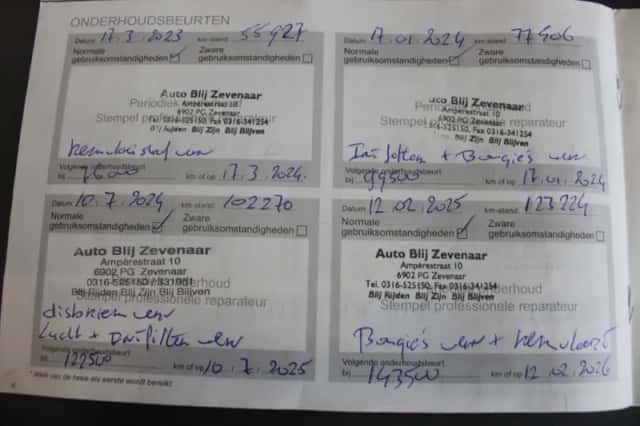 ONDERHOUDSBEURTEN
Datum 17.3.2023 km-stand 55927
Normale gebruiksomstandigheden
Zware gebruiksomstandigheden
Auto Blij Zevenaar
Periodiek
Ampèrestraat 10
6902 PG Zevenaar
Stempel professionele reparateur
Tel. 0316-525150, Fax 0316-341254
Blij Rijden Blij Zijn Blij Blijven
Volgende onderhoudsbeurt
bij km of op 17.3.2024.
Datum 17.01.2024 km-stand 77506
Normale gebruiksomstandigheden
Zware gebruiksomstandigheden
Auto Blij Zevenaar
Ampèrestraat 10
6902 PG Zevenaar
Stempel professionele reparateur
Tel. 0316-525150, Fax 0316-341254
Blij Zijn Blij Blijven
+ Bougie's verv
Volgende onderhoudsbeurt
bij 99500 km of op 17.01.2024
Datum 10.7.2024 km-stand 102270
Normale gebruiksomstandigheden
Zware gebruiksomstandigheden
Auto Blij Zevenaar
Ampèrestraat 10
6902 PG Zevenaar
0316-525150 / 331951
Blij Rijden Blij Zijn Blij Blijven
Stempel professionele reparateur
disbriem verv
Lucht + verv
Volgende onderhoudsbeurt
bij 122500 km of op 10.7.2025
Datum 12.02.2025 km-stand 123224
Normale gebruiksomstandigheden
Zware gebruiksomstandigheden
Auto Blij Zevenaar
Ampèrestraat 10
6902 PG Zevenaar
Tel. 0316-525150, Fax 0316-341254
Blij Rijden Blij Zijn Blij Blijven
Stempel professionele reparateur
Bougie's verv +
Volgende onderhoudsbeurt
bij 143500 km of op 12.02.2026
* Welk van de twee als eerste wordt bereikt